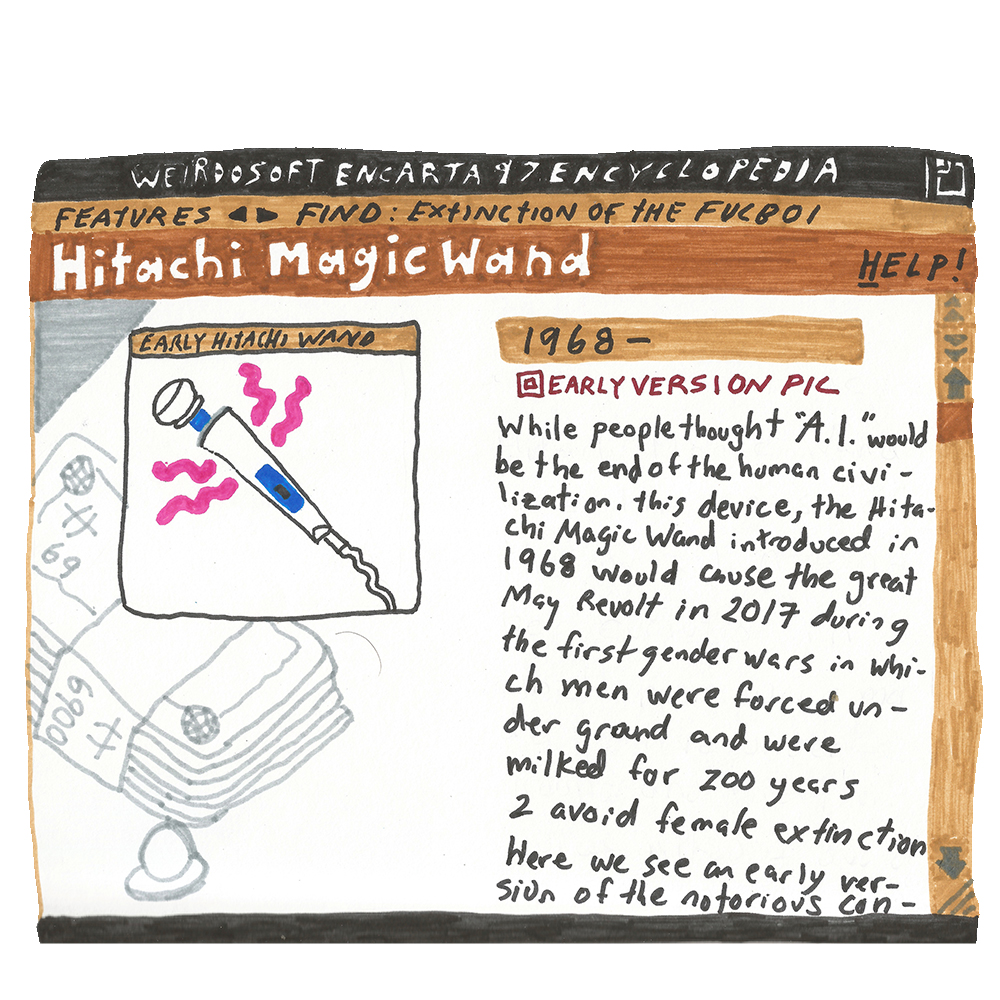 WEIRDOSOFT ENCARTA 97 ENCYCLOPEDIA
FEATURES ◄ ► FIND: EXTINCTION OF THE FUCBOI
Hitachi Magic Wand
HELP!
EARLY HITACHI WAND
1968 –
EARLY VERSION PIC
While people thought "A.I." would
be the end of the human civi-
lization. this device, the Hita-
chi Magic Wand introduced in
1968 would cause the great
May Revolt in 2017 during
the first gender wars in whi-
ch men were forced un-
der ground and were
milked for 200 years
2 avoid female extinction
Here we see an early ver-
sion of the notorious con-
69
6900